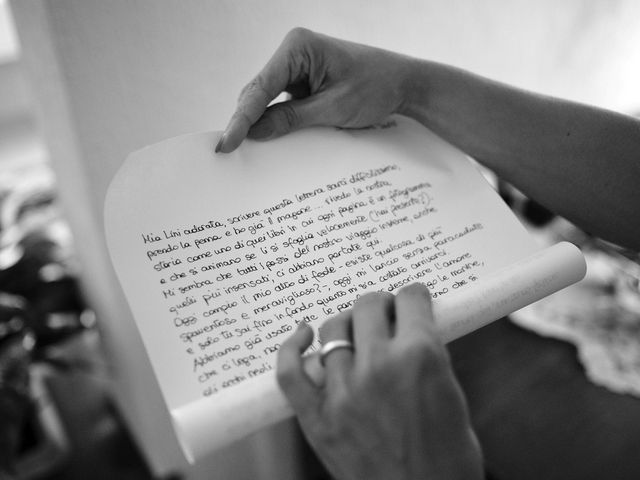 Mia Lini adorata, scrivere questa lettera sarà difficilissimo,
prendo la penna e ho già il magone... Rivedo la nostra
storia come uno di quei libri in cui ogni pagina è un fotogramma
e che si animano se li si sfoglia velocemente (hai presente?).
Mi sembra che tutti i passi del nostro viaggio insieme, anche
quelli più insensati, ci abbiano portate qui.
Oggi compio il mio atto di fede - esiste qualcosa di più
spaventoso e meraviglioso? -, oggi mi lancio senza paracadute
e solo tu sai fino in fondo quanto mi sia costato arrivarci.
Abbiamo già usato tutte le parole per descrivere l'amore
che ci lega, non le mamme,
gli occhi negli che si